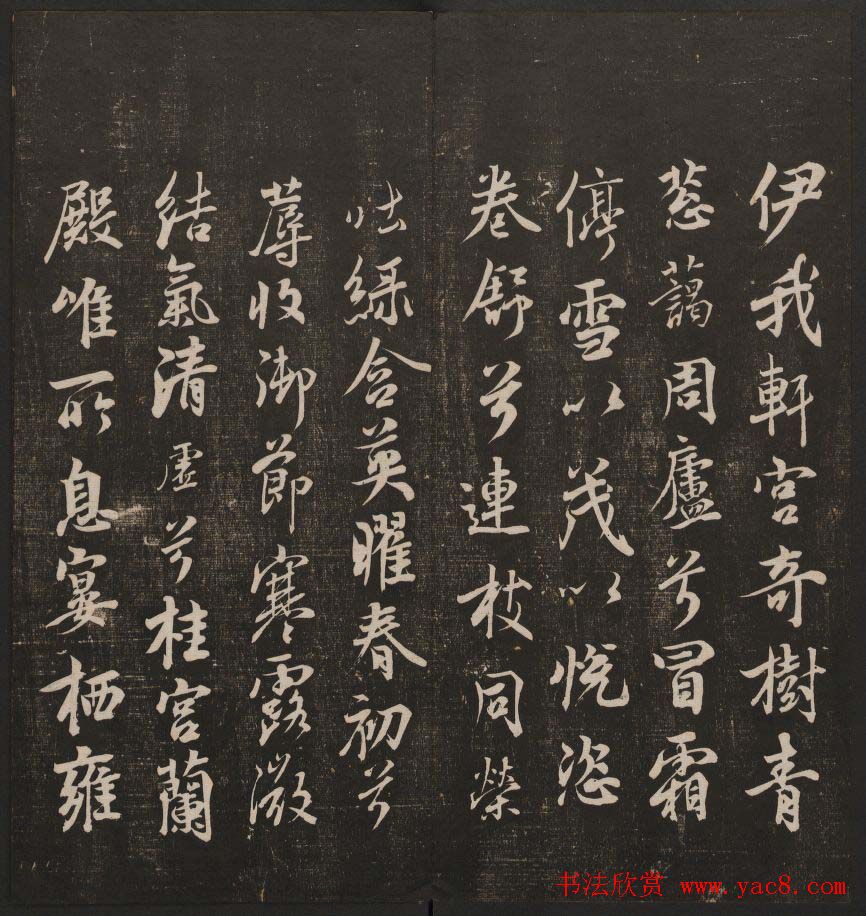 伊我軒宮奇樹青
蔥藹周廬兮冒霜
停雪以茂以悅恣
卷舒兮連枝同榮
吐綠含英曜春初兮
蓐收御節寒露微
結氣清虛兮桂宮蘭
殿唯所息宴栖雍
书法欣赏 www.yac8.com